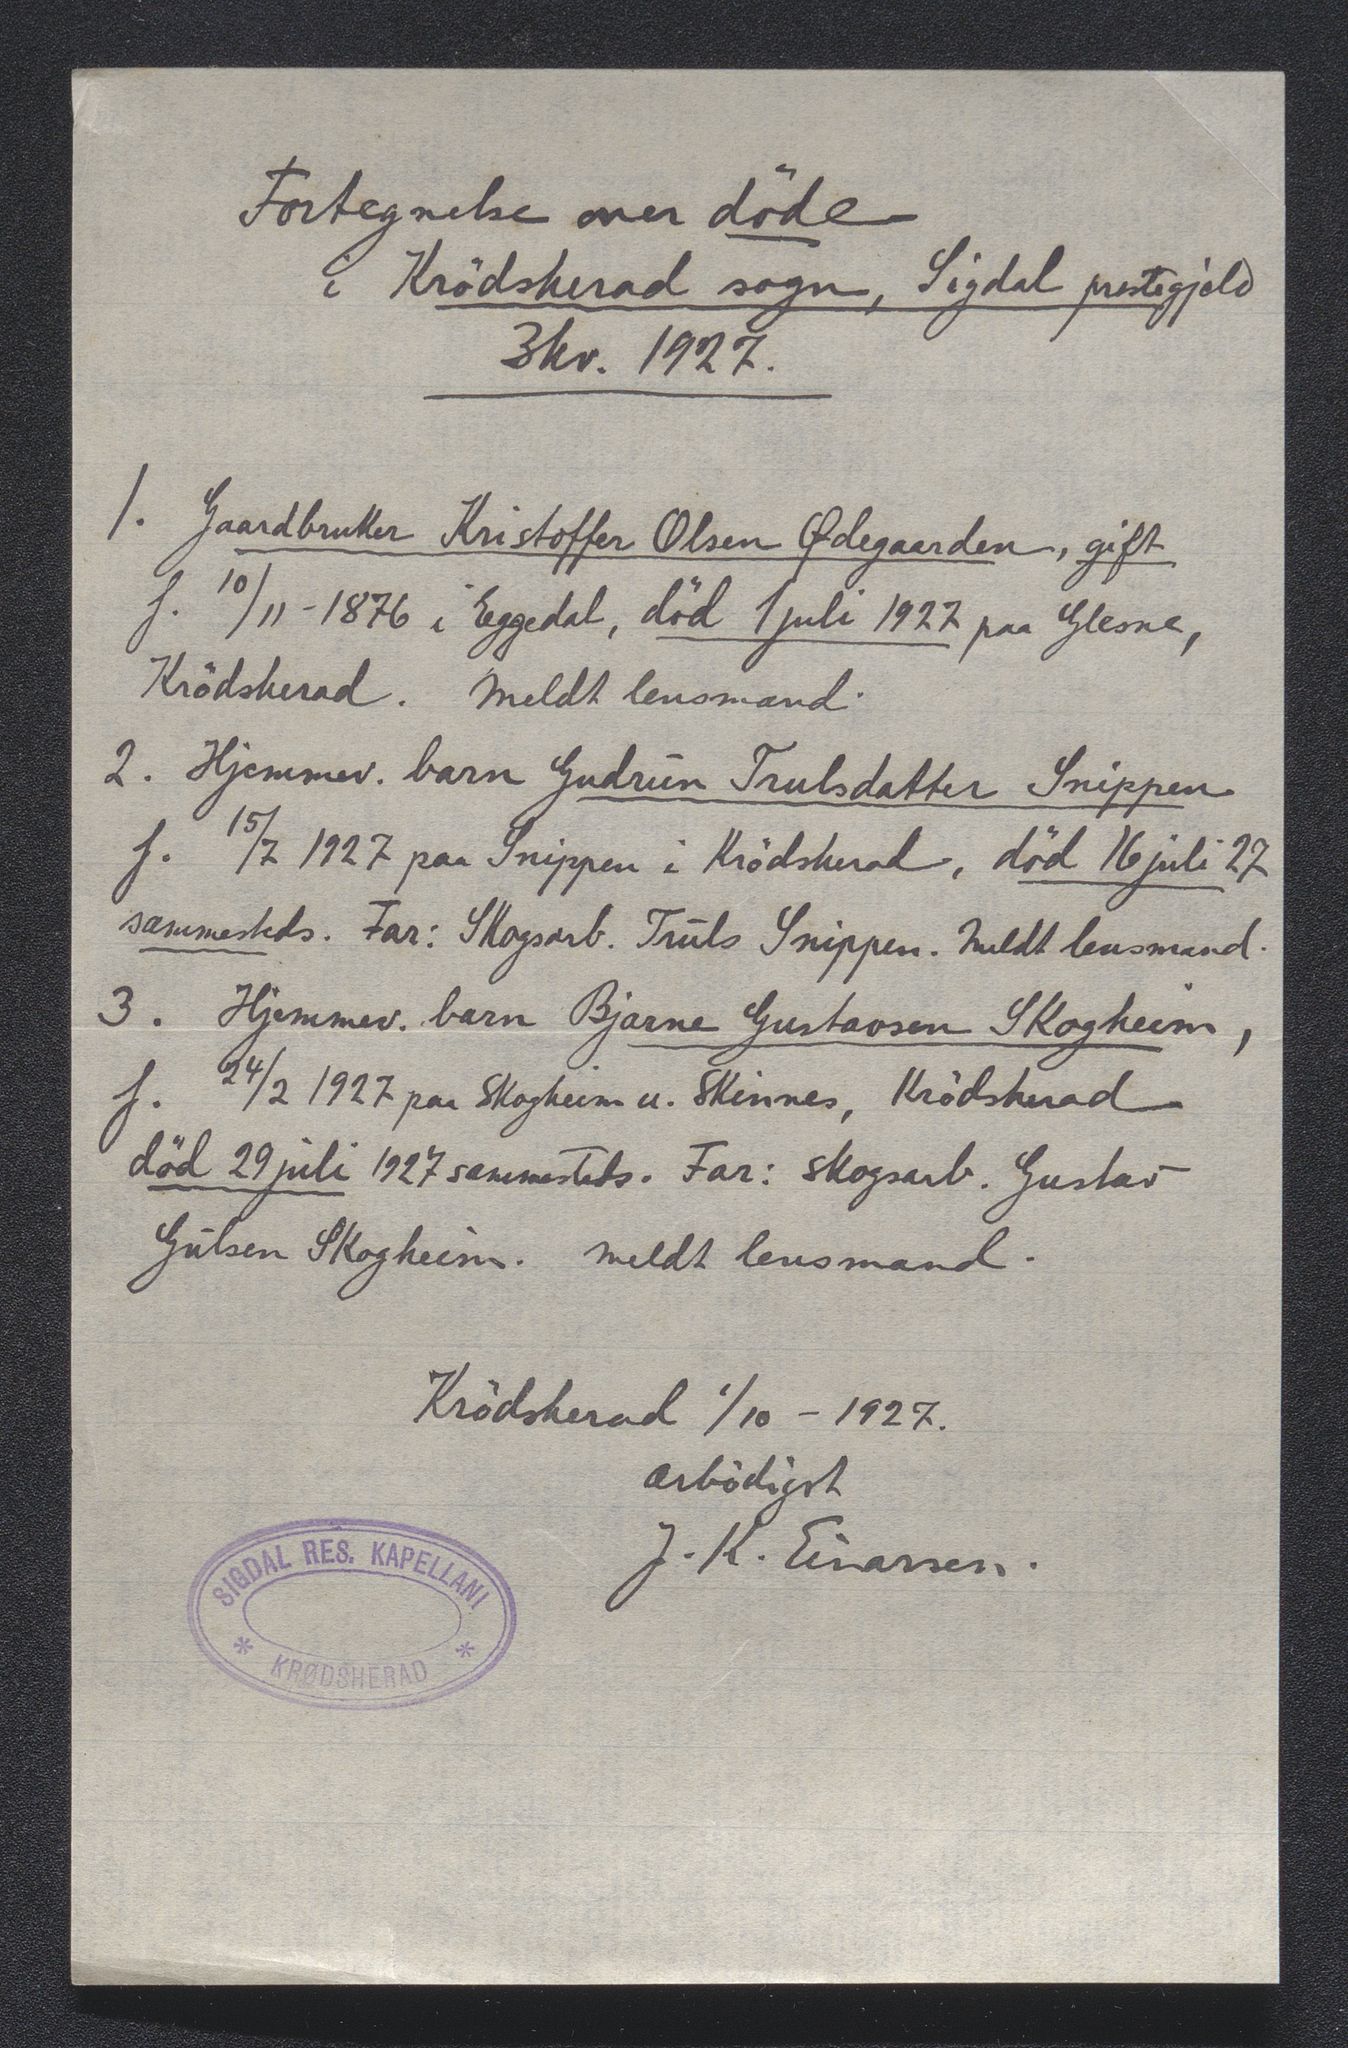 Fortegnelse over döde
i Krödsherad sogn, Sigdal prestegjeld
3kv. 1927.
1. Gaardbruker Kristoffer Olsen Ødegaarden, gift
f. 10/11-1876 i Eggedal, död 1 juli 1927 paa Glesne,
Krödsherad. Meldt lensmand.
2. Hjemmev. barn Gudrun Trulsdatter Snippen
f. 15/7 1927 paa Snippen i Krödsherad, död 16 juli 27
sammesteds. Far: Skogsarb. Truls Snippen. Meldt lensmand.
3. Hjemmev. barn Bjarne Gustavsen Skogheim,
f. 24/2 1927 paa Skogheim u. Skinnes, Krödsherad
död 29 juli 1927 sammesteds. Far: skogsarb. Gustav
Gulsen Skogheim. Meldt lensmand.
Krödsherad 1/10 - 1927.
ærbödigst
J. K. Einarsen.
SIGDAL RES. KAPELLANI
* KRØDSHERAD *